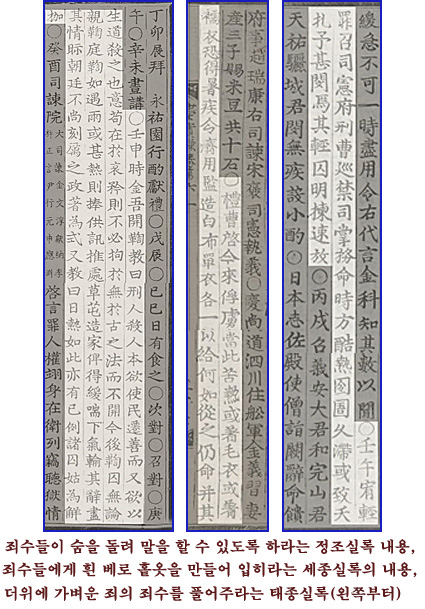 丁卯展拜 永祐園行酌獻禮○戊辰○己巳日有食之○次對○召對○庚
午○辛未晝講○壬申時金吾開鞫教曰刑人殺人本欲使民遷善而又欲以
生道殺之也意苟在於哀矜則不必拘於無於古之法而不開今後鞫囚無論
親鞫庭鞫如遇雨或甚熱則捧供訊推處草芚造家俾得緩喘下氣輸其辭盡
其情眎朝廷不尚刻厲之政著為式又教曰日熱如此亦有已例諸囚姑為解
枷○癸酉司諫院 大司諫金文淳獻納李 正言尹行元申應 啓言罪人權翊身在衛列竊聽獄情
府事趙瑞康右司諫宋褎司憲執義○慶尚道泗川住船軍金義習妻
産三子賜米豆共十石○禮曹啓今來俘虜當此苦熱或著毛衣或著
襦衣恐得暑疾令濟用監造白布單衣各一以給何如從之仍命并其
緩急不可一時盡用令右代言金科知其數以聞○壬午宥輕
罪召司憲府刑曹巡禁司掌務命時方酷熱囹圄久滯或致夭
札予甚閔焉其輕囚明揀速放○丙戌召義安大君和完山君
天祐驪城君閔無疾設小酌○日本志佐殿使僧詣闕辭命饋
죄수들이 숨을 돌려 말을 할 수 있도록 하라는 정조실록 내용,
죄수들에게 흰 베로 홑옷을 만들어 입히라는 세종실록의 내용,
더위에 가벼운 죄의 죄수를 풀어주라는 태종실록(왼쪽부터)